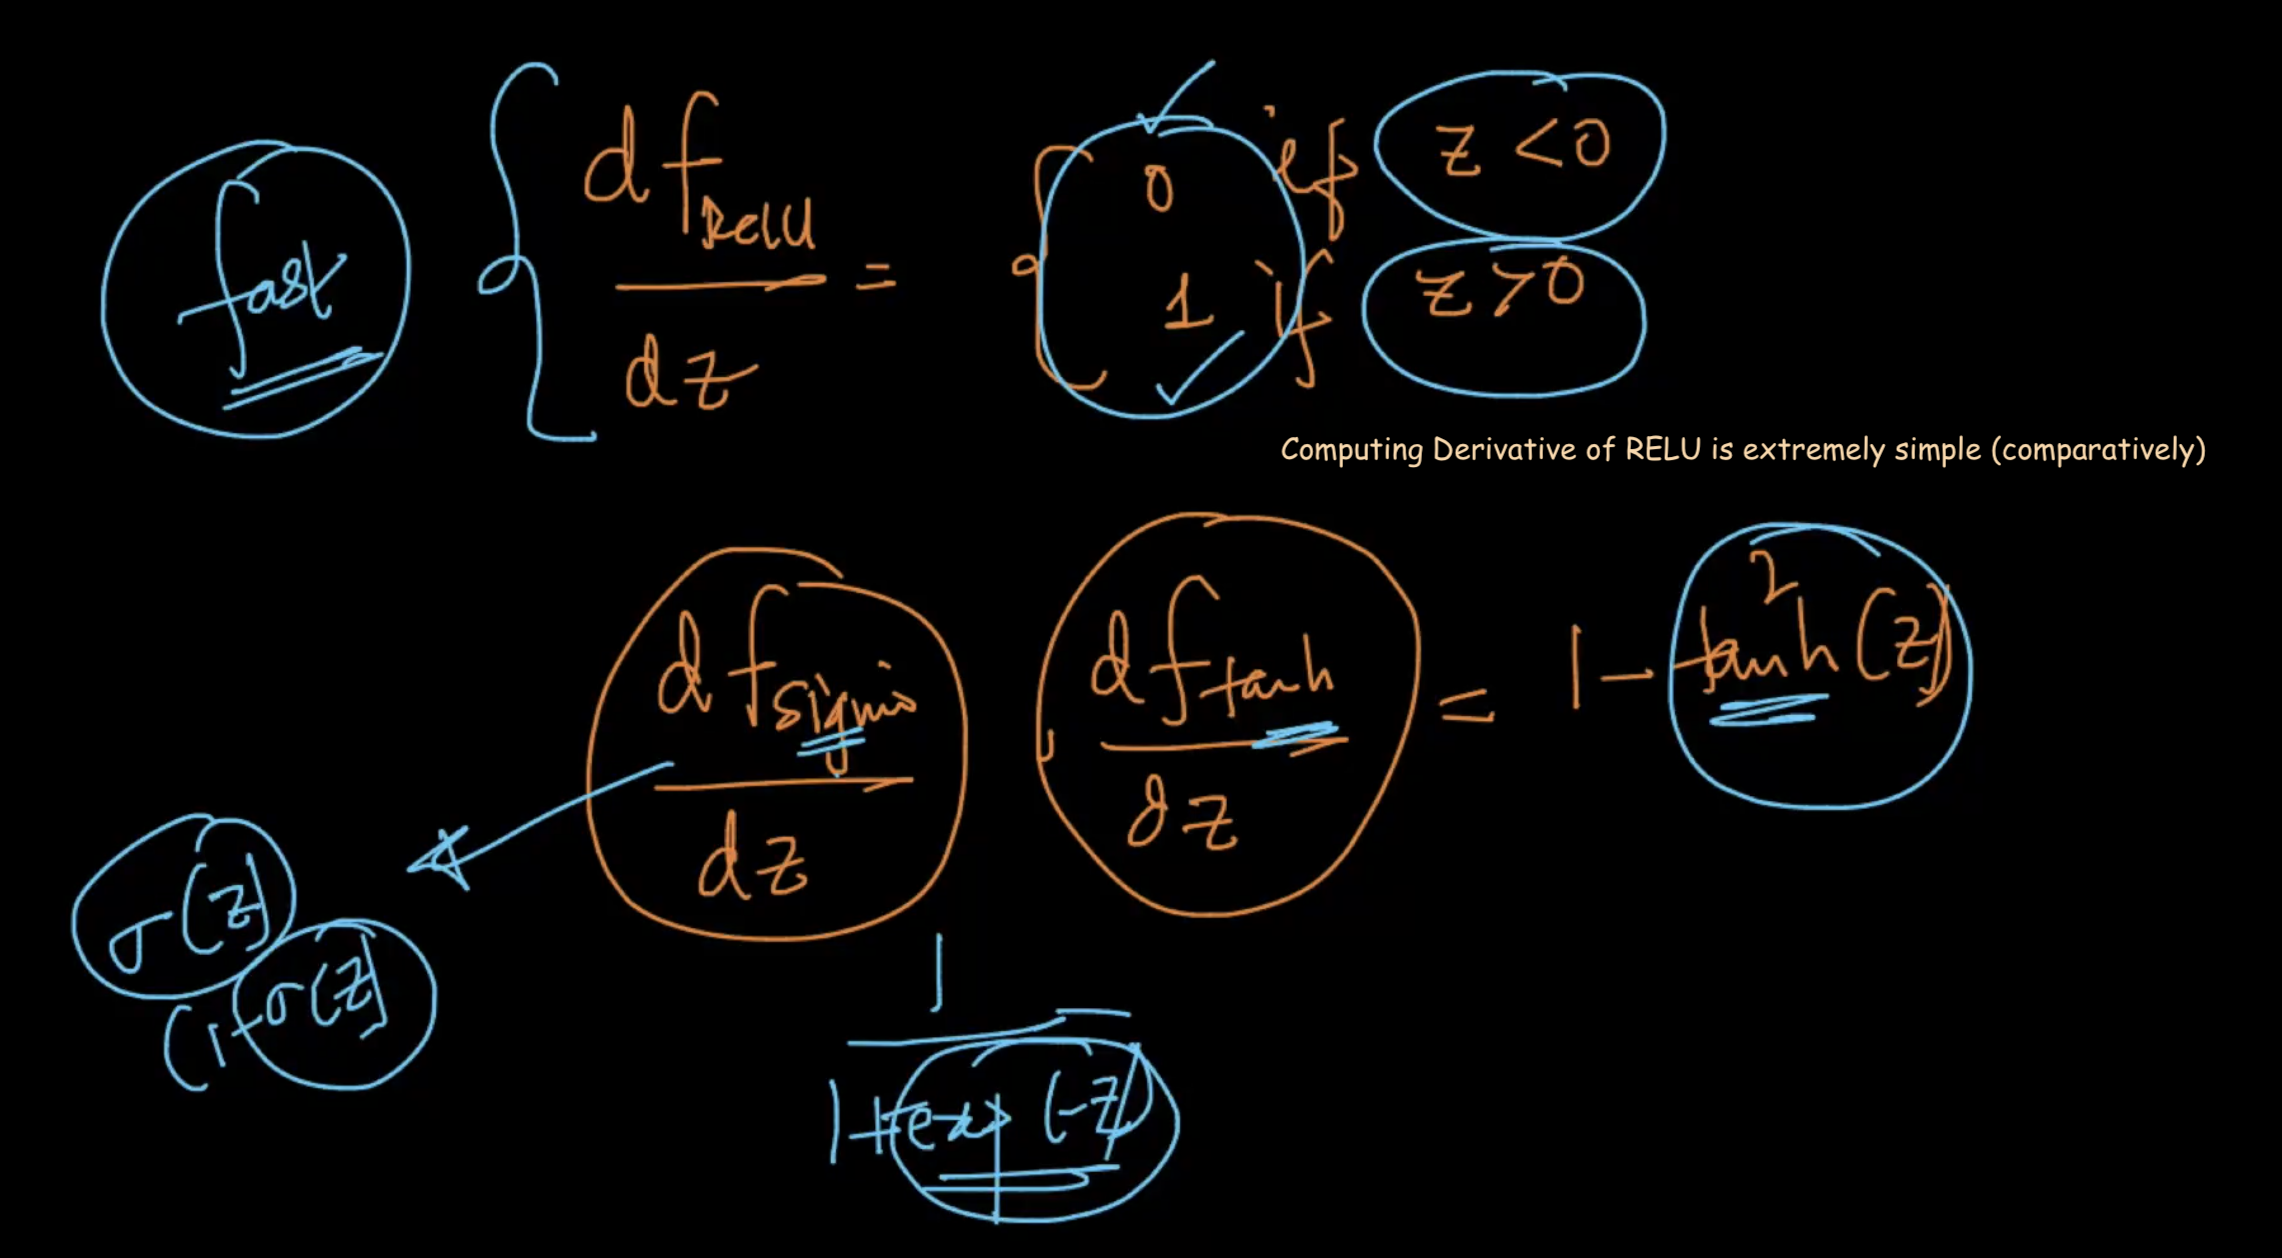 fast { df_Relu / dz = { 0 if z < 0
1 if z > 0
Computing Derivative of RELU is extremely simple (comparatively)
df_sigmo / dz
df_tanh / dz = 1 - tanh²(z)
σ(z)
(1-σ(z)
1 / 1+exp(-z)